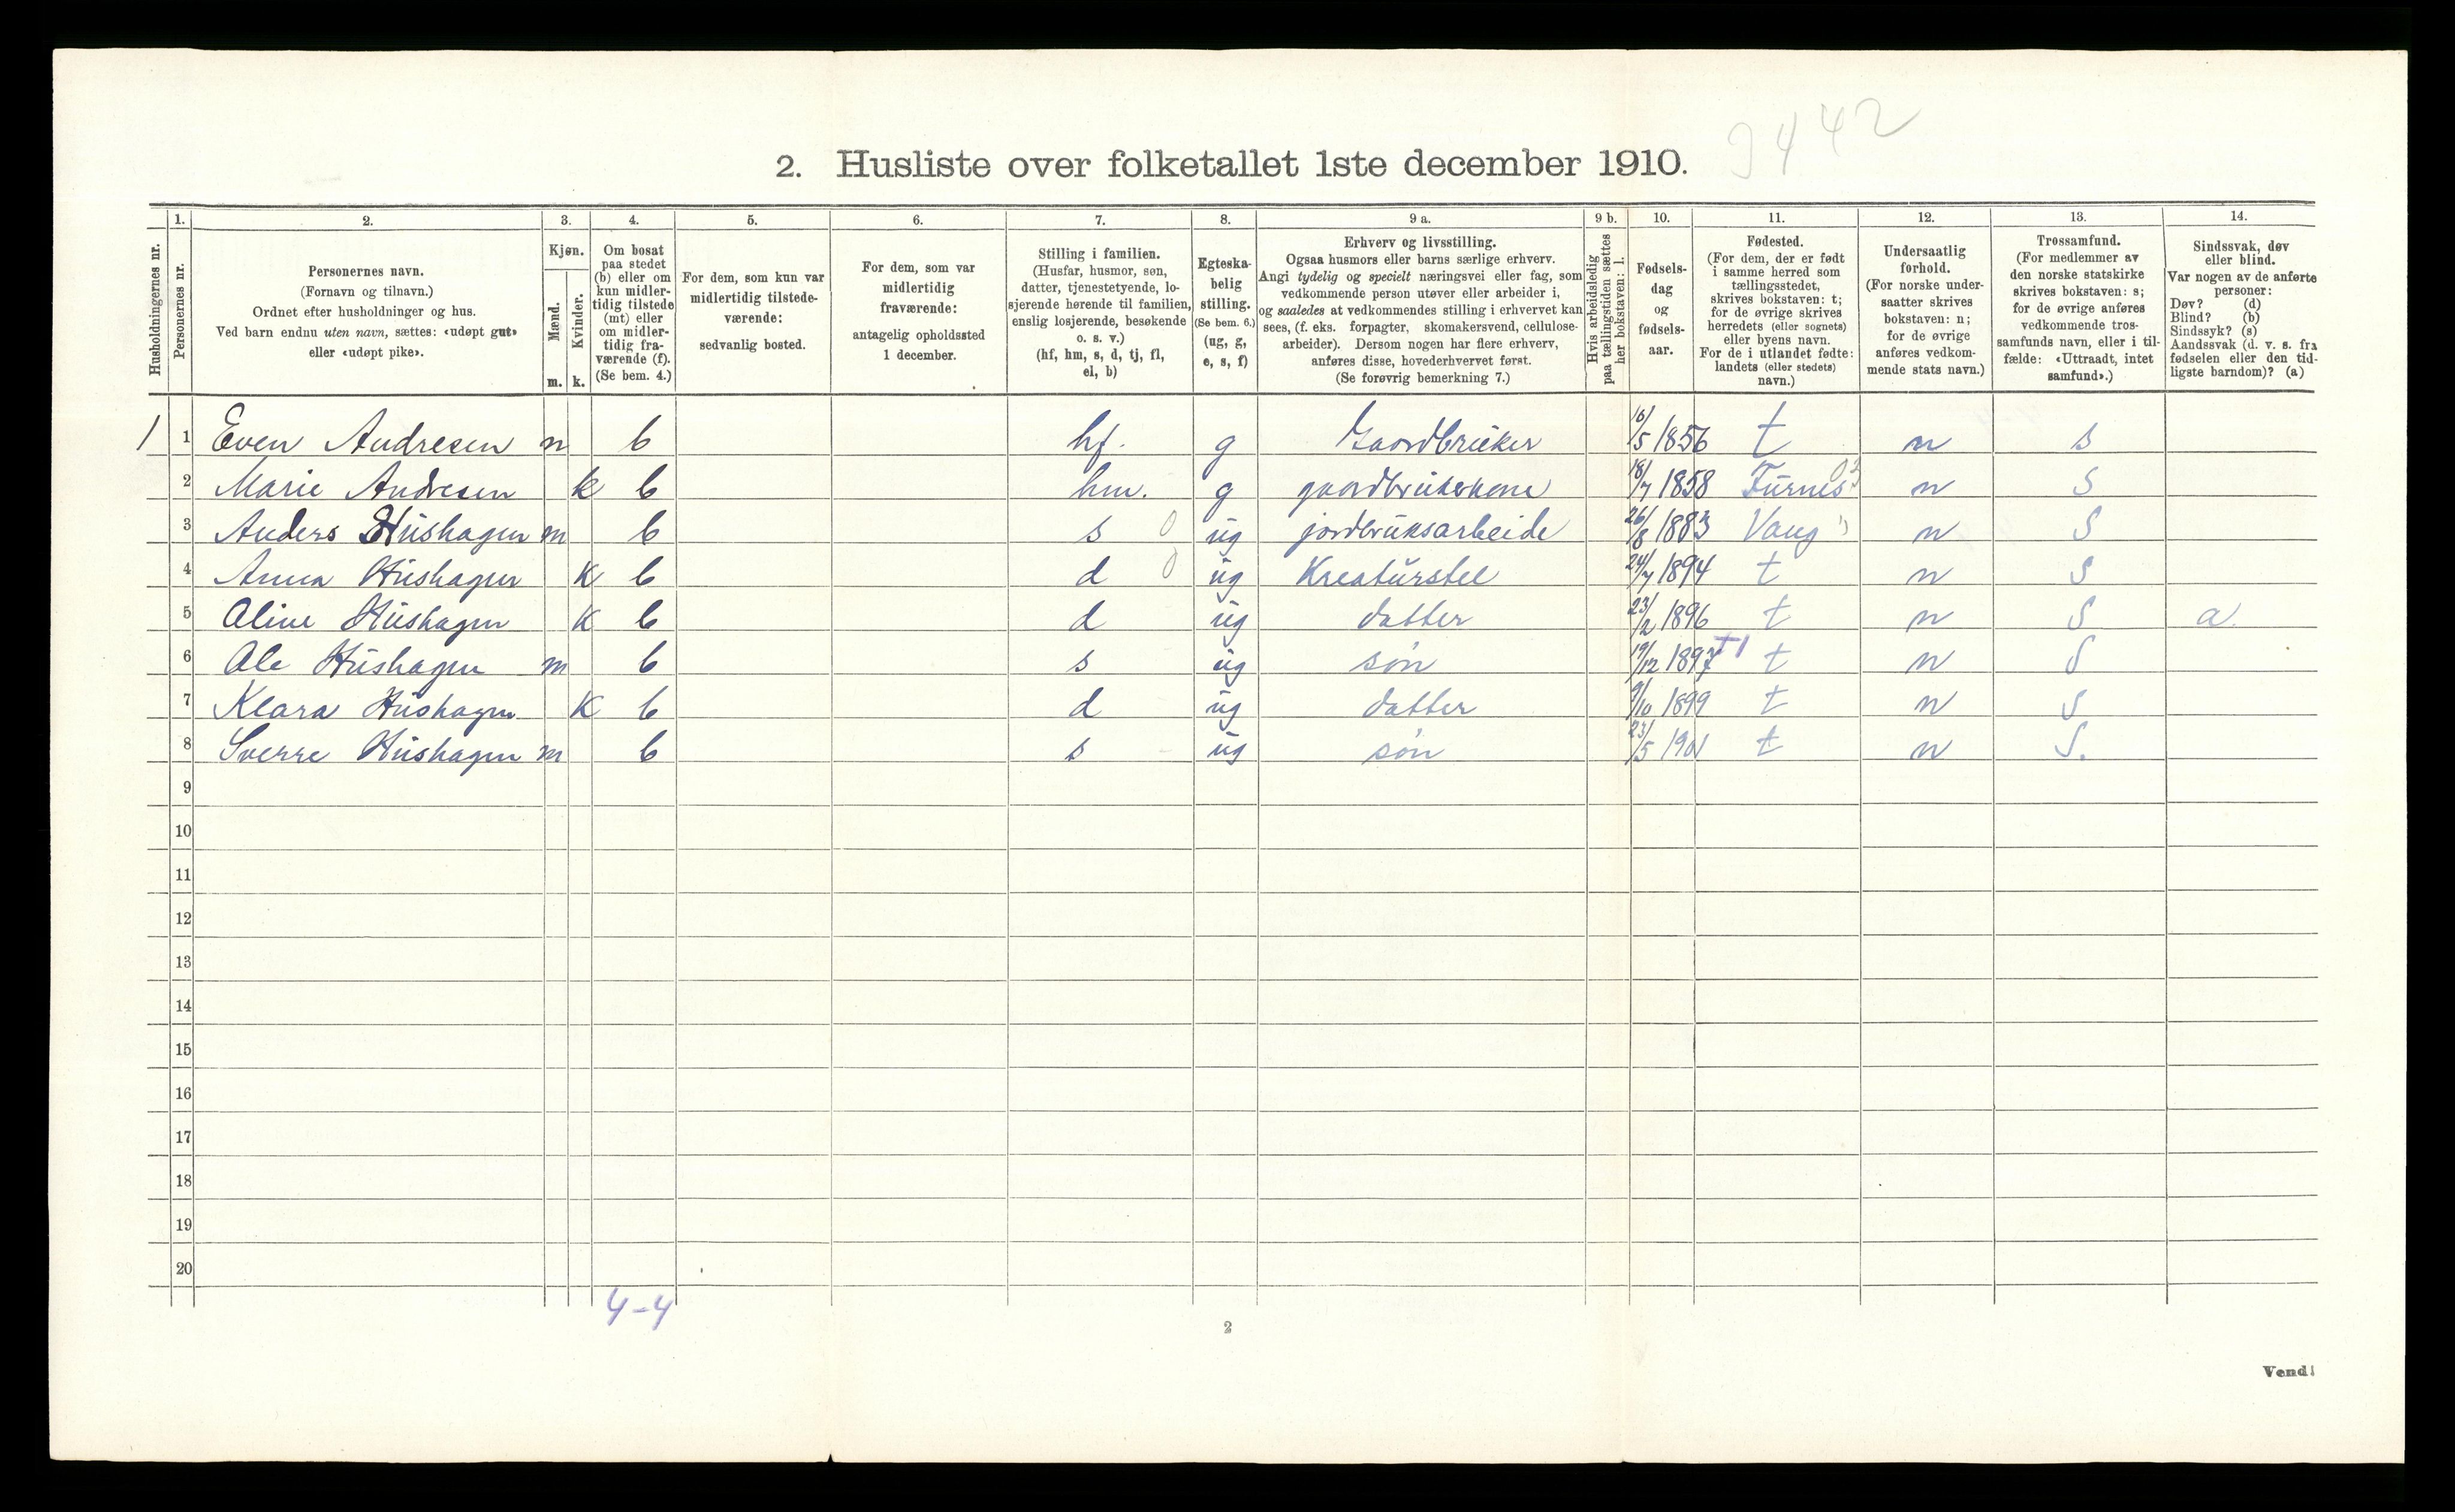 3442
2. Husliste over folketallet 1ste december 1910.
Husholdningernes nr.
1. Personernes nr.
2. Personernes navn.
(Fornavn og tilnavn.)
Ordnet efter husholdninger og hus.
Ved barn endnu uten navn, sættes: «udøpt gut»
eller «udøpt pike».
3. Kjøn.
Mænd. m.
Kvinder. k.
4. Om bosat
paa stedet
(b) eller om
kun midler-
tidig tilstede
(mt) eller
om midler-
tidig fra-
værende (f).
(Se bem. 4.)
5. For dem, som kun var
midlertidig tilstede-
værende:
sedvanlig bosted.
6. For dem, som var
midlertidig
fraværende:
antagelig opholdssted
1 december.
7. Stilling i familien.
(Husfar, husmor, søn,
datter, tjenestetyende, lo-
sjerende hørende til familien,
enslig losjerende, besøkende
o. s. v.)
(hf, hm, s, d, tj, fl,
el, b)
8. Egteska-
belig
stilling.
(Se bem. 6.)
(ug, g,
e, s, f)
9 a. Erhverv og livsstilling.
Ogsaa husmors eller barns særlige erhverv.
Angi tydelig og specielt næringsvei eller fag, som
vedkommende person utøver eller arbeider i,
og saaledes at vedkommendes stilling i erhvervet kan
sees, (f. eks. forpagter, skomakersvend, cellulose-
arbeider). Dersom nogen har flere erhverv,
anføres disse, hovederhvervet først.
(Se forøvrig bemerkning 7.)
9 b. Hvis arbeidsledig
paa tællingstiden sættes
her bokstaven: l.
10. Fødsels-
dag
og
fødsels-
aar.
11. Fødested.
(For dem, der er født
i samme herred som
tællingsstedet,
skrives bokstaven: t;
for de øvrige skrives
herredets (eller sognets)
eller byens navn.
For de i utlandet fødte:
landets (eller stedets)
navn.)
12. Undersaatlig
forhold.
(For norske under-
saatter skrives
bokstaven: n;
for de øvrige
anføres vedkom-
mende stats navn.)
13. Trossamfund.
(For medlemmer av
den norske statskirke
skrives bokstaven: s;
for de øvrige anføres
vedkommende tros-
samfunds navn, eller i til-
fælde: «Uttraadt, intet
samfund».)
14. Sindssvak, døv
eller blind.
Var nogen av de anførte
personer:
Døv? (d)
Blind? (b)
Sindssyk? (s)
Aandssvak (d. v. s. fra
fødselen eller den tid-
ligste barndom)? (a)
1 1 Even Andresen m b hf. g Gaardbruker 16/5 1856 t n s
2 Marie Andresen k b hm. g gaardbrukerkone 18/7 1858 Furnes n S
3 Anders Hushagen m b s 0 ug jordbruksarbeide 26/8 1883 Vang n S
4 Anna Hushagen k b d 0 ug Kreaturstel 24/7 1894 t n S
5 Aline Hushagen k b d ug datter 23/2 1896 t n S a.
6 Ole Hushagen m b s ug søn 19/12 1897 t n S
7 Klara Hushagen k b d ug datter 9/10 1899 t n S
8 Sverre Hushagen m b s ug søn 23/5 1901 t n S.
9
10
11
12
13
14
15
16
17
18
19
20
4-4
2
Vend!